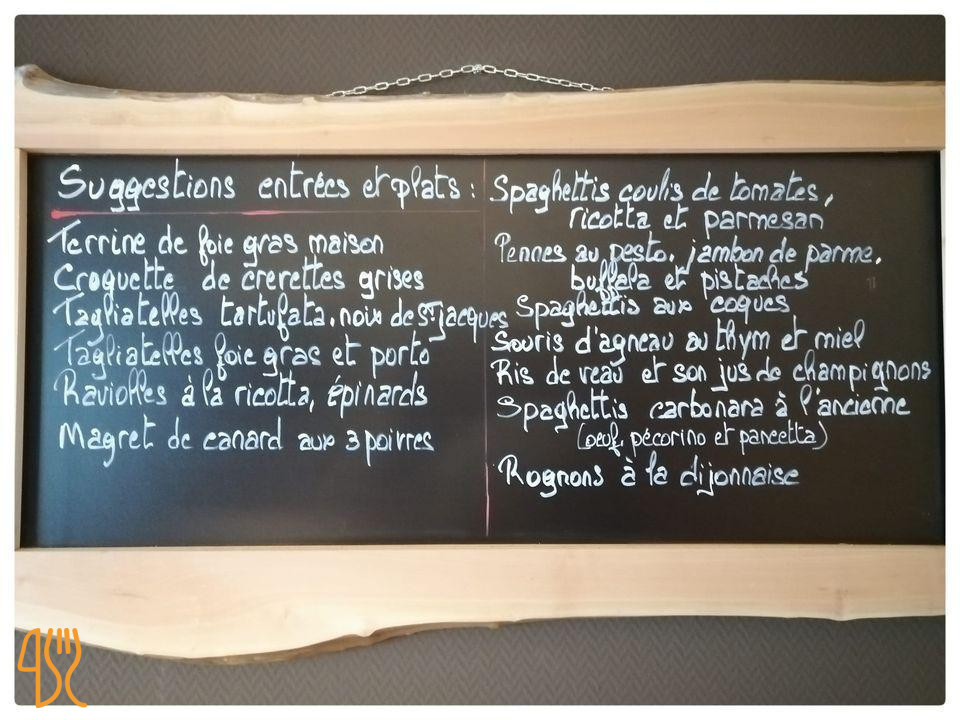 Suggestions entrées et plats :
Terrine de foie gras maison
Croquette de crerettes grises
Tagliatelles tartufata, noix de St jacques
Tagliatelles foie gras et porto
Raviolles à la ricotta, épinards
Magret de canard aux 3 poivres
Spaghettis coulis de tomates,
ricotta et parmesan
Pennes au pesto, jambon de parme,
buffala et pistaches
Spaghettis aux coques
Souris d'agneau au thym et miel
Ris de veau et son jus de champignons
Spaghettis carbonara à l'ancienne
(oeuf, pécorino et pancetta)
Rognons à la dijonnaise